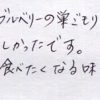 ブルベリーの巣ごもり
しかったです。
食べたくなる味